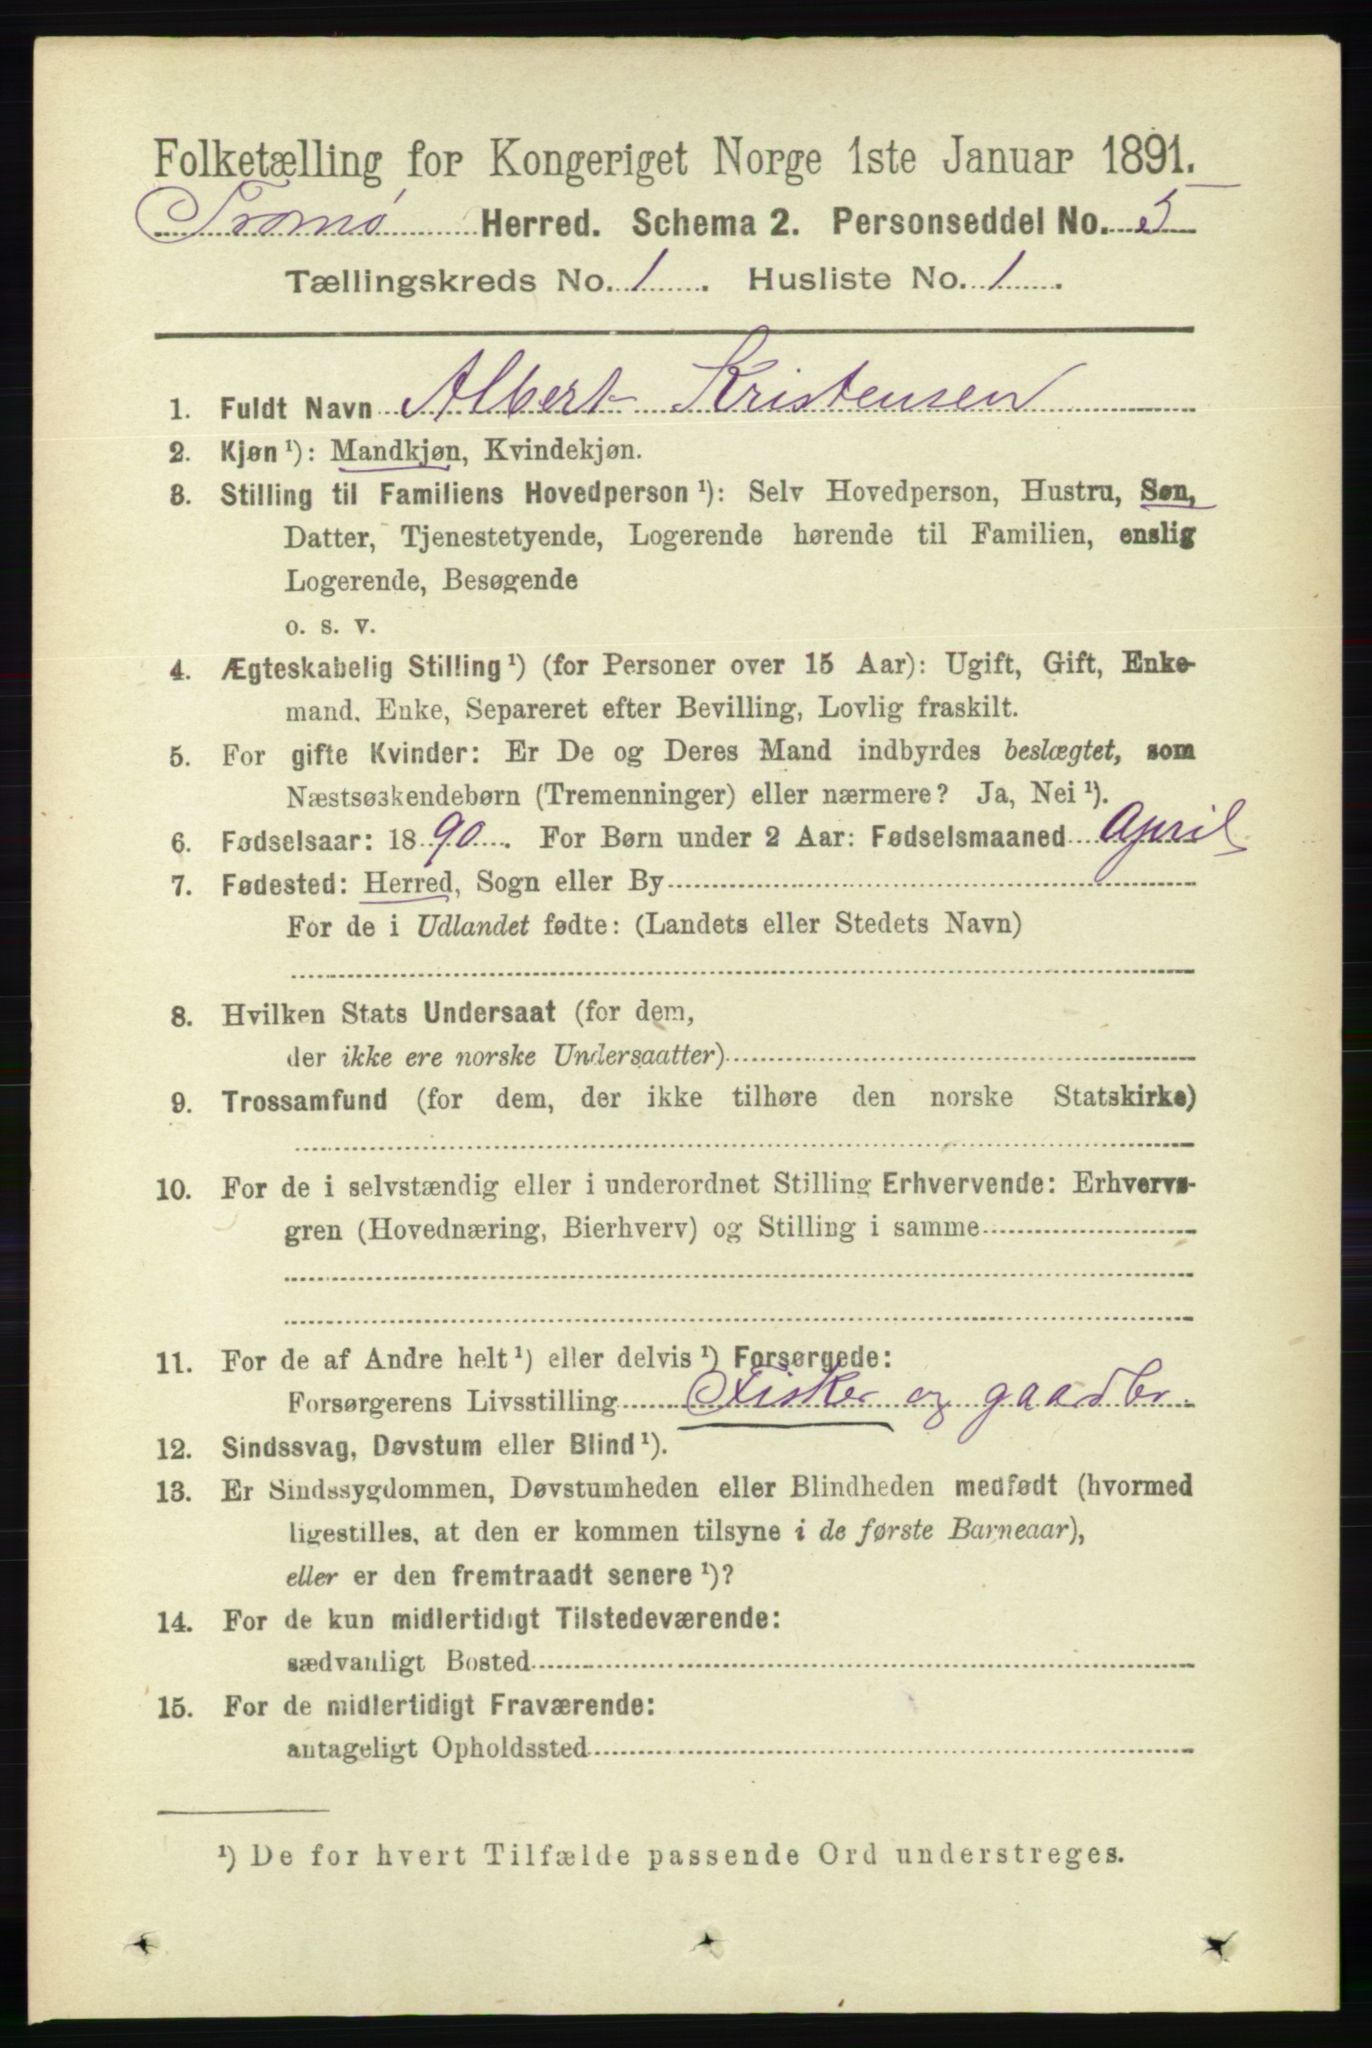 Folketælling for Kongeriget Norge 1ste Januar 1891.
Tromø Herred. Schema 2. Personseddel No. 5
Tællingskreds No. 1. Husliste No. 1.
1. Fuldt Navn Albert Kristensen
2. Kjøn ¹): Mandkjøn, Kvindekjøn.
3. Stilling til Familiens Hovedperson ¹): Selv Hovedperson, Hustru, Søn,
Datter, Tjenestetyende, Logerende hørende til Familien, enslig
Logerende, Besøgende
o. s. v.
4. Ægteskabelig Stilling ¹) (for Personer over 15 Aar): Ugift, Gift, Enke-
mand, Enke, Separeret efter Bevilling, Lovlig fraskilt.
5. For gifte Kvinder: Er De og Deres Mand indbyrdes beslægtet, som
Næstsøskendebørn (Tremenninger) eller nærmere? Ja, Nei ¹).
6. Fødselsaar: 1890. For Børn under 2 Aar: Fødselsmaaned April
7. Fødested: Herred, Sogn eller By
For de i Udlandet fødte: (Landets eller Stedets Navn)
8. Hvilken Stats Undersaat (for dem,
der ikke ere norske Undersaatter)
9. Trossamfund (for dem, der ikke tilhøre den norske Statskirke)
10. For de i selvstændig eller i underordnet Stilling Erhvervende: Erhvervs-
gren (Hovednæring, Bierhverv) og Stilling i samme
11. For de af Andre helt ¹) eller delvis ¹) Forsørgede:
Forsørgerens Livsstilling Fisker og gaardbr.
12. Sindssvag, Døvstum eller Blind ¹).
13. Er Sindssygdommen, Døvstumheden eller Blindheden medfødt (hvormed
ligestilles, at den er kommen tilsyne i de første Barneaar),
eller er den fremtraadt senere ¹)?
14. For de kun midlertidigt Tilstedeværende:
sædvanligt Bosted
15. For de midlertidigt Fraværende:
antageligt Opholdssted
¹) De for hvert Tilfælde passende Ord understreges.